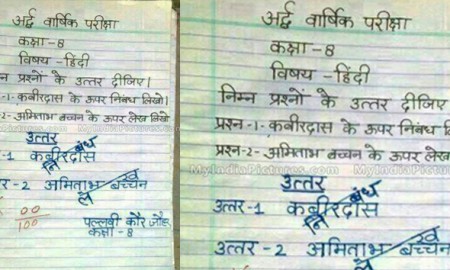 अर्द्ध वार्षिक परीक्षा
कक्षा - 8
विषय - हिंदी
प्रश्नों के उत्तर दीजिए।
-1- कबीरदास के ऊपर निबंध लिखो।
-2- अमिताभ बच्चन के ऊपर लेख लिखो
उत्तर
-1 कबीरदास
निबंध
-2 अमिताभ बच्चन
लेख
00
100
पल्लवी कौर
कक्षा - 8
अर्द्ध वार्षिक परीक्षा
कक्षा - 8
विषय - हिंदी
निम्न प्रश्नों के उत्तर दीजिए
प्रश्न -1- कबीरदास के ऊपर निबंध
प्रश्न -2- अमिताभ बच्चन के ऊपर लेख
MyIndiaPictures.com
उत्तर
उत्तर -1 कबीरदास
निबंध
उत्तर -2 अमिताभ बच्चन
लेख